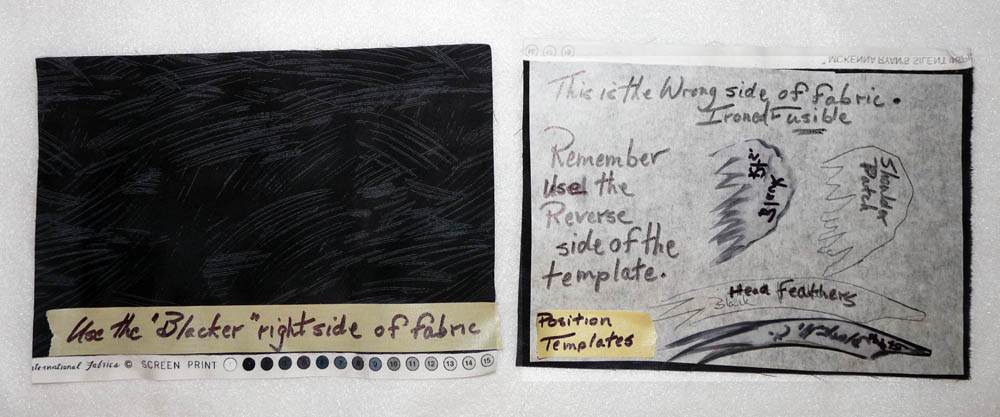 Use the "Blacker" right side of fabric
International Fabrics © SCREEN PRINT 1 10 11 12 13 14 15
MCKENNA RYAN'S SILENT
This is the Wrong side of fabric.
Ironed Fusible
Remember
Use the
Reverse
side of the
template.
Shoulder
Patch
Head feathers
Black
Position
Templates